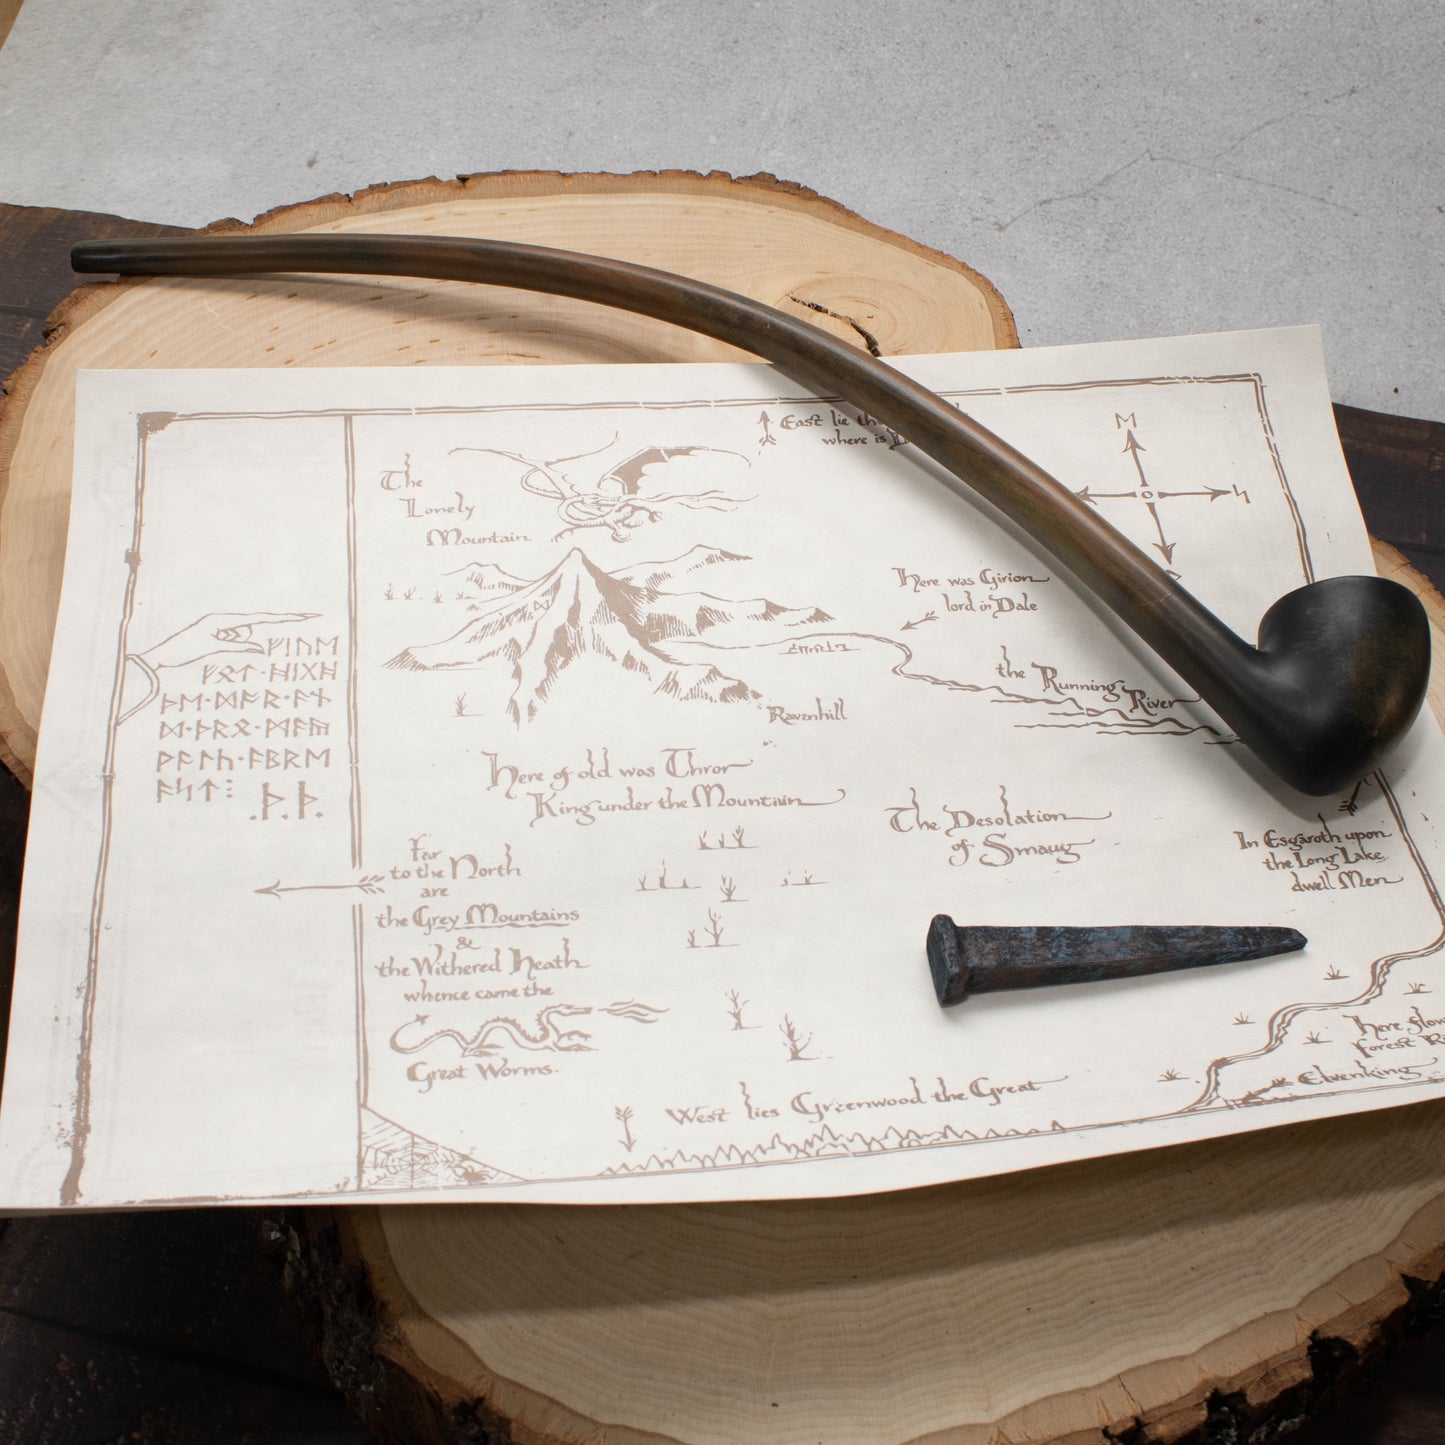 East lie
where is
ᛖ
ᛋ
The
Lonely
Mountain
Here was Girion
lord in Dale
ᚠᛁᚢᛖ
ᚠᚩᛏ·ᚻᛁᚷᚻ
ᚦᛖ·ᛞᚩᚱ·ᚪᚾ
ᛞ·ᚦᚱᛟ·ᛗᚪᚣ
ᚹᚪᛚᚳ·ᚪᛒᚱᛖ
ᚪᛋᛏ⁝ .ᚦ.ᚦ.
the Running River
Ravenhill
Here of old was Thror
King under the Mountain
The Desolation
of Smaug
In Esgaroth upon
the Long Lake
dwell Men
Far
to the North
are
the Grey Mountains
&
the Withered Heath
whence came the
Great Worms.
Here
Forest
Elvenking
West lies Greenwood the Great